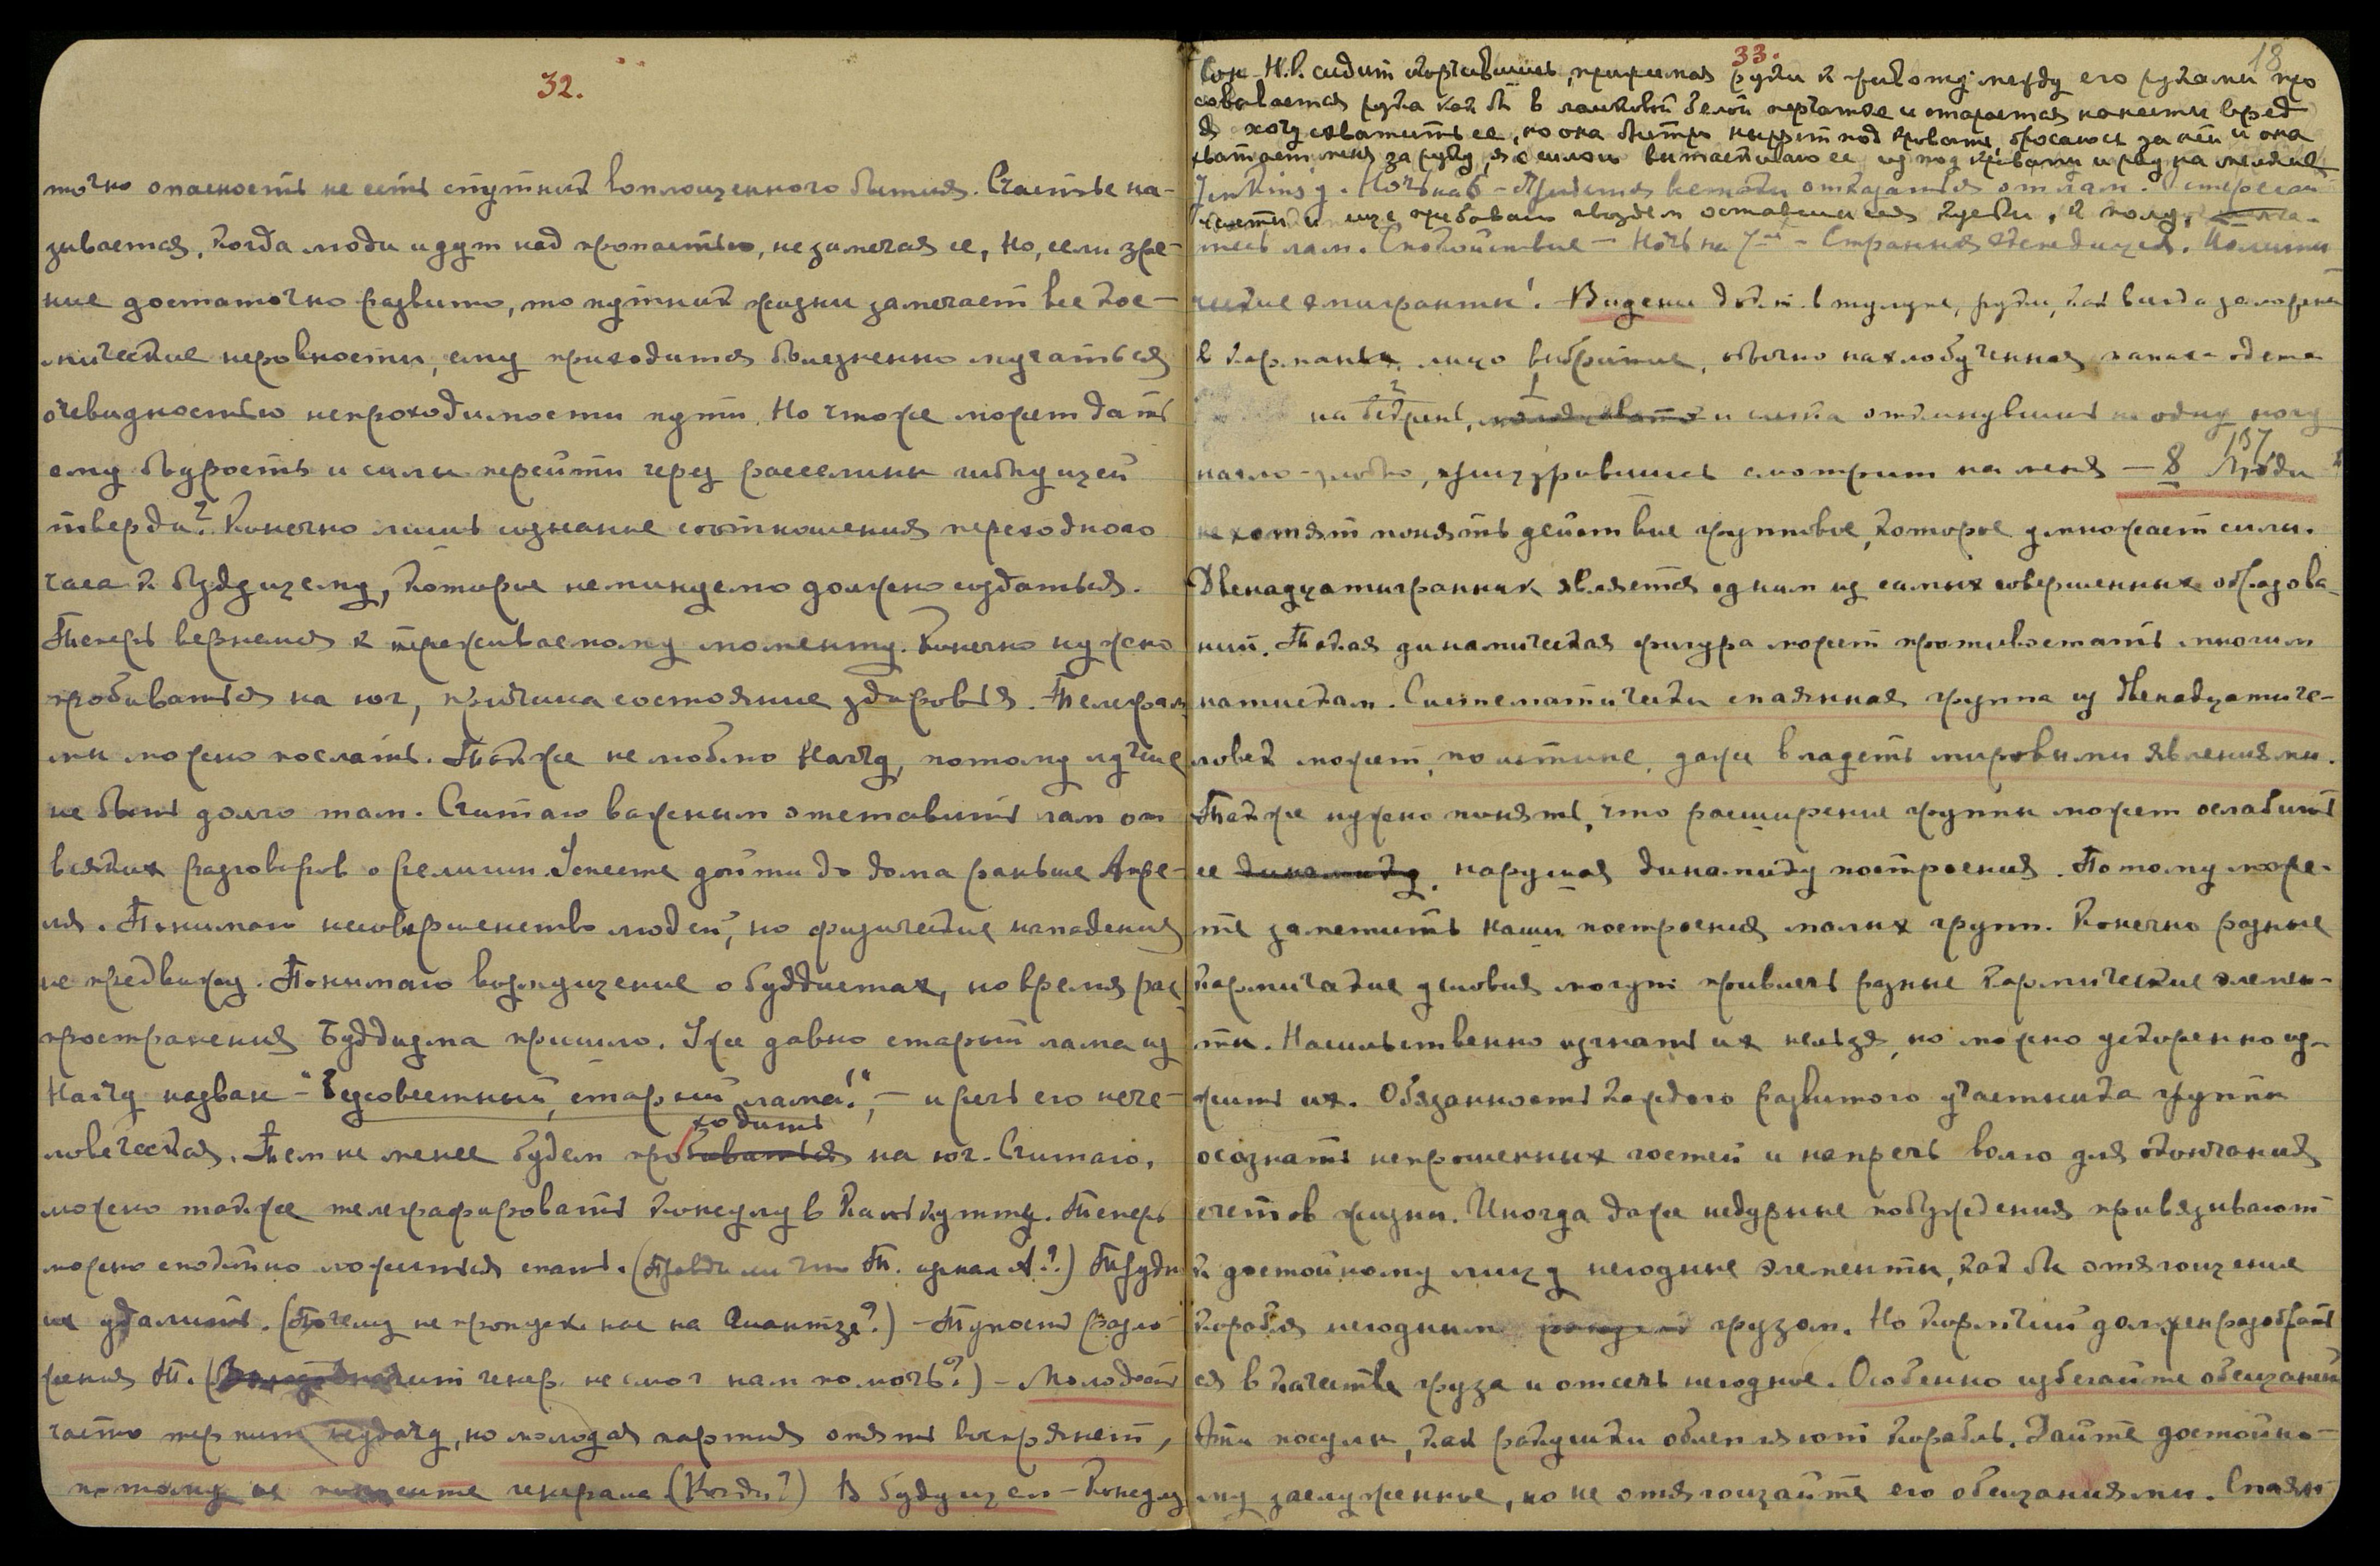 32.
точно опасность не есть спутник воплощенного бытия. Счастье на-
зывается, когда люди идут над пропастью, не замечая ее, но, если зре-
ние достаточно развито, то путник жизни замечает все кос-
мические неровности, ему приходится болезненно мучаться
очевидностью непроходимости пути. Но что же может дать
ему бодрость и силы перейти через расселины гибнущей
тверди? Конечно лишь сознание соотношения переходного
часа к будущему, которое неминуемо должно создаться.
Теперь вернемся к переживаемому моменту. Конечно нужно
пробиваться на юг, причина состояние здоровья. Телеграм
мы можно послать. Также не люблю Нагчу, потому лучше
не быть долго там. Считаю важным отставить лам от
всяких разговоров о религии. Успеете дойти до дома раньше Апре-
ля. Понимаю несовершенство людей, но физические нападения
не предвижу. Понимаю возмущение о буддистах, но время рас
пространения Буддизма пришло. Уже давно старый лама из
Нагчу назван - "Бессовестный, старый лама!", - и речь его нече-
ходить
ловеческая. Тем не менее будем пробиваться на юг. Считаю,
можно также телеграфировать консулу в Калькутту. Теперь
можно спокойно ложиться спать. (Правда ли что Т. изгнал А.?) Трудн
их удалить. (Почему не пропуск. нас на Гиантзе?) - Тупость разло
жения Т. ( генер. не смог нам помочь?) - Молодость
часто терпит неудачу, но молодая партия опять воспрянет,
потому не генерала. (Когда?) В будущем - Консулу
33.
18
Сон - Н.К. сидит скорчившись, прижимая руки к животу между его руками про
совывается рука как бы в лайковой белой перчатке и старается нанести вред
Я хочу схватить ее, но она быстро ныряет под кровать, бросаюсь за ней и она
хватает меня за руку, я с силою вытаскиваю ее из под кровати и рву на мелкие
Ночь на 6 - Придется все таки отказаться от лам.
части и еще требовало гвоздем оставшиеся куски, к полу,
тесь лам. Спокойствие - Ночь на 7-ое - Странная экспедиция.
ческие эмигранты! - Видения в тулупе, руки, как всегда заложены
в карманы, лицо выбритое, обычно нахлобученная папаха одета
2 1
на бекрень, и слегка откинувшись на одну ногу
нагло-злобно, прищурившись смотрит на меня - 8 Люди
137
не хотят понять действие групповое, которое умножает силы.
Двенадцатигранник является одним из самых совершенных образова-
ний. Такая динамическая фигура может противостать многим
натискам. Систематически спаянная группа из двенадцати че-
ловек может, по истине, даже владеть мировыми явлениями.
Также нужно понять, что расширение группы может ослабить
ее динамику, нарушая динамику построения. Потому може-
те заметить наши построения малых групп. Конечно разные
кармические условия могут привлечь разные кармические элемен-
ты. Насильственно изгнать их нельзя, но можно ускоренно из-
жить их. Обязанность каждого развитого участника группы
осознать непрошенных гостей и напречь волю для окончания
счетов жизни. Иногда даже недурные побуждения привязывают
к достойному лицу негодные элементы, как бы отягощение
корабля негодным грузом. Но кормчий должен разобрать
ся в качестве груза и отсечь негодное. Особенно избегайте обещаний
Эти посулы, как ракушки облепляют корабль. Дайте достойно-
му заслуженное, но не отягощайте его обещаниями. Спаян-